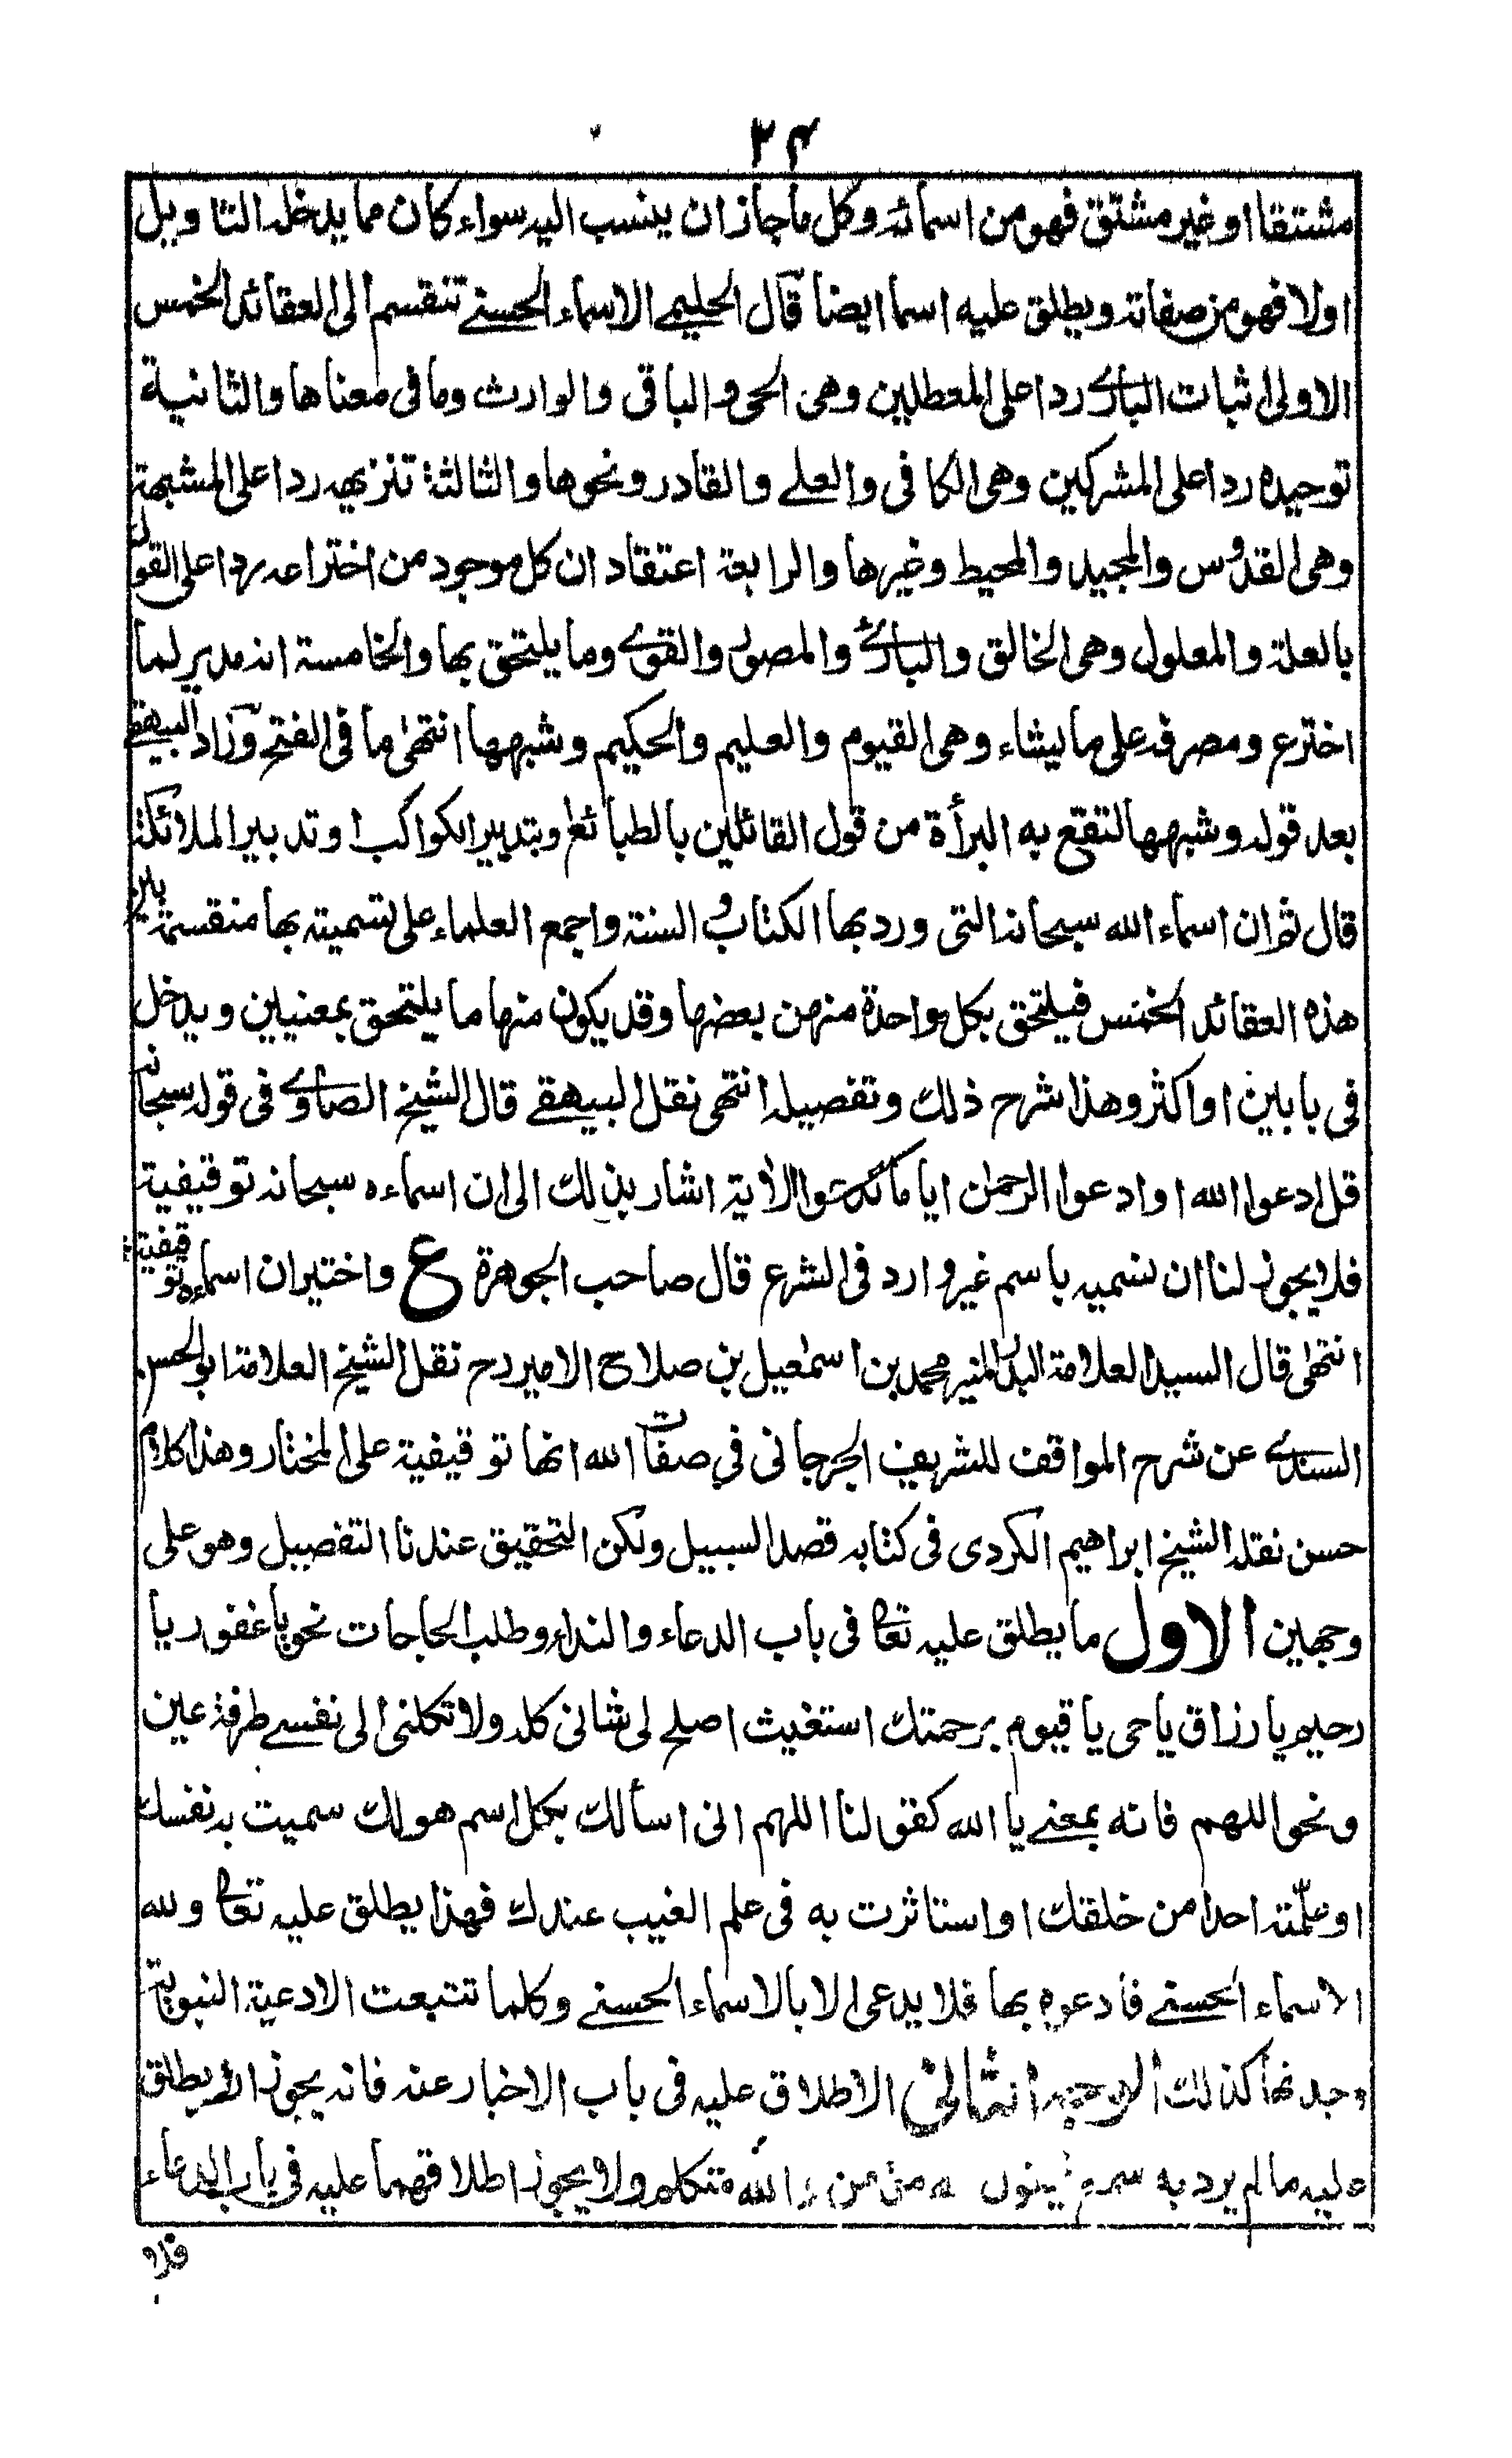 ٢٤
مشتقا او غير مشتق فهو من اسمائه وكل ما جاز ان ينسب اليه سواء كان مما يدخله التاويل
اولا فهو من صفاته ويطلق عليه اسما ايضا قال الحليمي الاسماء الحسنى تنقسم الى العقائد الخمس
الاولى اثبات الباري ردا على المعطلين وهى الحى والباقى والوارث وما فى معناها والثانية
توحيده ردا على المشركين وهى الكافى والعلي والقادر ونحوها والثالثة تنزيهه ردا على المشبهة
وهى القدوس والمجيد والمحيط وغيرها والرابعة اعتقاد ان كل موجود من اختراعه ردا على القول
بالعلة والمعلول وهى الخالق والبارئ والمصور والقوي وما يلتحق بها والخامسة انه مدبر لما
اخترع ومصرفه على ما يشاء وهى القيوم والعليم والحكيم وشبهها انتهى ما فى الفتح وزاد البيهقي
بعد قوله وشبهها لتقع به البرأة من قول القائلين بالطبائع او بتدبير الكواكب او تدبير الملائكة
قال ثم ان اسماء الله سبحانه التى ورد بها الكتاب والسنة واجمع العلماء على تسميته بها منقسمة بين
هذه العقائد الخمس فيلتحق بكل واحدة منهن بعضها وقد يكون منها ما يلتحق بمعنيين ويدخل
فى بابين او اكثر وهذا شرح ذلك وتفصيله انتهى نقل البيهقي قال الشيخ الصاوي فى قوله سبحانه
قل ادعوا الله او ادعوا الرحمن ايا ما تدعوا الاٰية اشار بذلك الى ان اسماءه سبحانه توقيفية
فلا يجوز لنا ان نسميه باسم غير وارد فى الشرع قال صاحب الجوهرة ع واختير ان اسماءه توقيفية
انتهى قال السيد العلامة البدر المنير محمد بن اسمٰعيل بن صلاح الامير رح نقل الشيخ العلامة ابو الحسن
السندي عن شرح المواقف للشريف الجرجانى في صفات الله انها توقيفية على المختار وهذا كلام
حسن نقله الشيخ ابراهيم الكردى فى كتابه قصد السبيل ولكن التحقيق عندنا التفصيل وهو على
وجهين الاول ما يطلق عليه تعالى فى باب الدعاء والنداء وطلب الحاجات نحو يا غفور يا
رحيم يا رزاق يا حى يا قيوم برحمتك استغيث اصلح لى شانى كله ولا تكلنى الى نفسي طرفة عين
ونحو اللهم فانه بمعنى يا الله كقولنا اللهم انى اسألك بكل اسم هو لك سميت به نفسك
او علّمته احدا من خلقك او استاثرت به فى علم الغيب عندك فهذا يطلق عليه تعالى ولله
الاسماء الحسنى فادعوه بها فلا يدعى الا بالاسماء الحسنى وكلما تتبعت الادعية النبوية
وجدتها كذلك الوجه الثانى الاطلاق عليه فى باب الاخبار عنه فانه يجوز ان يطلق
عليه ما لم يرد به سمع الله متكلم ولا يجوز اطلاقهما عليه فى باب الدعاء
فلا